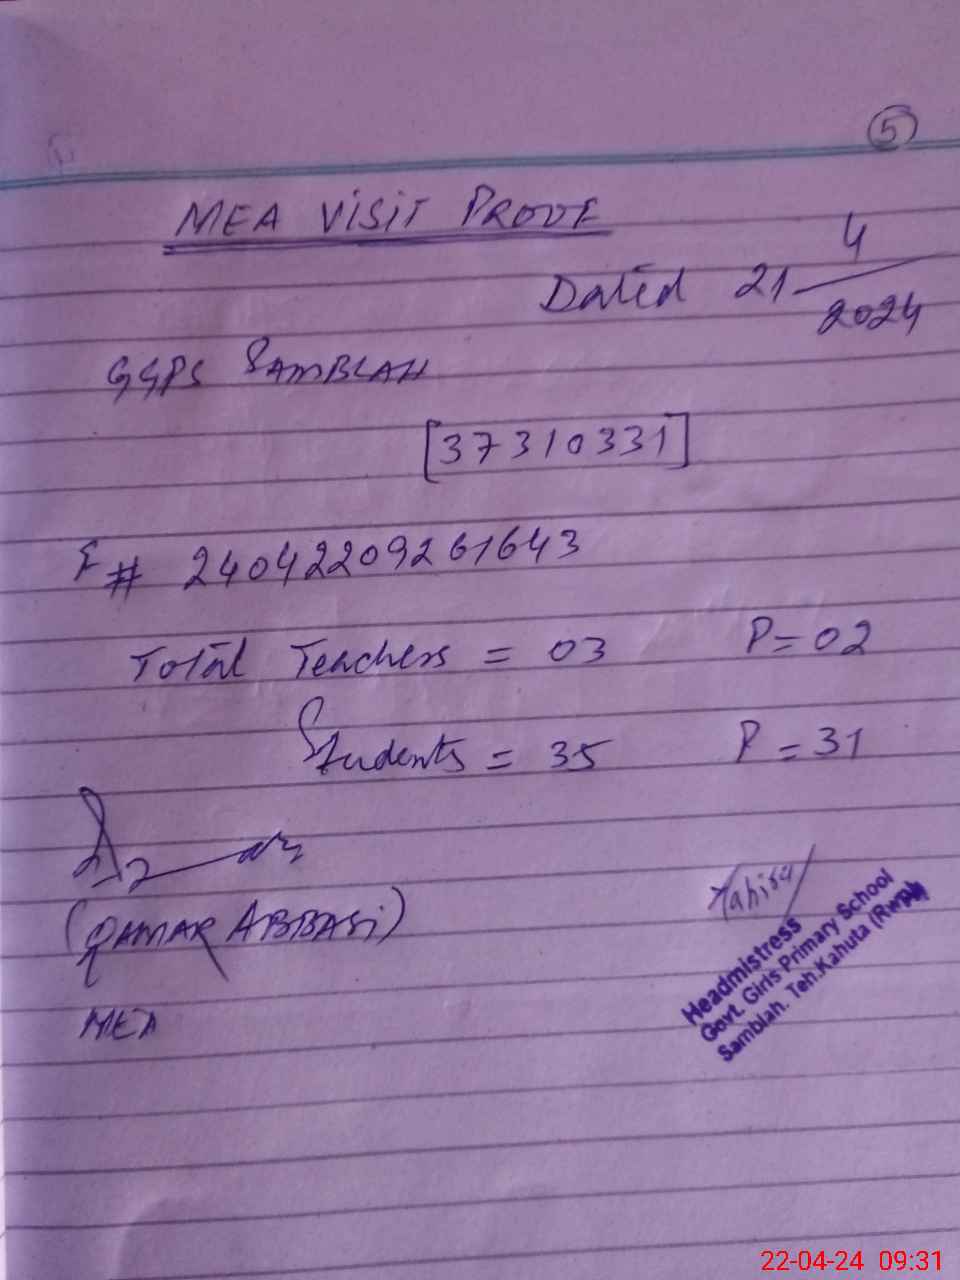 5
MEA VISIT PROVE
Dated 21 4/2024
GGPS SAMBLAH
[37310331]
F# 24042209261643
Total Teachers = 03 P=02
Students = 35 P=31
(QAMAR ABBASI)
MEA
Tahira
Headmistress
Govt. Girls Primary School
Samblah. Teh.Kahuta (Rwp)
22-04-24 09:31